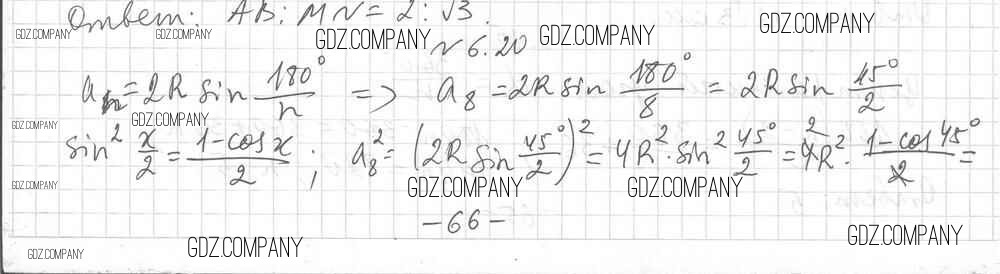 Ответ: AB : MN = 2 : √3.
GDZ.COMPANY GDZ.COMPANY GDZ.COMPANY GDZ.COMPANY GDZ.COMPANY
№ 6.20
aₙ = 2R sin 180°/n => a₈ = 2R sin 180°/8 = 2R sin 45°/2
GDZ.COMPANY GDZ.COMPANY
sin² x/2 = (1-cos x)/2 ; a₈² = (2R sin 45°/2)² = 4R² · sin² 45°/2 = 4R² · (1-cos 45°)/2 =
GDZ.COMPANY GDZ.COMPANY GDZ.COMPANY
-66-
GDZ.COMPANY GDZ.COMPANY GDZ.COMPANY